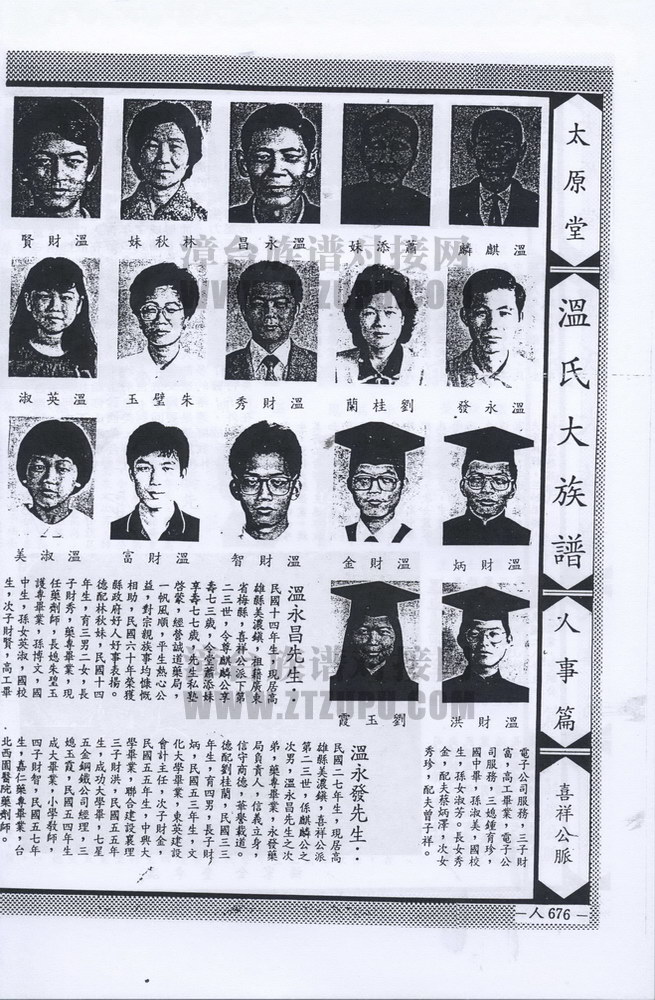 太原堂
溫氏大族譜
人事篇
喜祥公脈
人676
溫麒麟
蕭添妹
溫永昌
林秋妹
溫財賢
溫永發
劉桂蘭
溫財秀
朱璧玉
溫英淑
溫財炳
溫財金
溫財智
溫財富
溫淑美
溫財洪
劉玉霞
漳台族谱对接网
WWW.ZTZUPU.COM
漳台族谱对接网
WWW.ZTZUPU.COM
溫永昌先生：
民國十四年生，現居高
雄縣美濃鎮，祖籍廣東
省梅縣，喜祥公派下第
二三世，令尊麒麟公享
壽七三歲，令堂蕭添妹
享壽七七歲，先生私塾
啓蒙，經營誠道藥局，
一帆風順，平生熱心公
益，對宗親族事均慷慨
相助，民國六十年榮獲
縣政府好人好事表揚。
德配林秋妹，民國十四
年生，育三男二女，長
子財秀，藥專畢業，現
任藥劑師，長媳朱璧玉
護專畢業，孫博文，國
中生，孫女英淑，國校
生，次子財賢，高工畢
電子公司服務，三子財
富，高工畢業，電子公
司服務，三媳鍾育珍，
國中畢，孫淑美，國校
生，孫女淑芳。長女秀
金，配夫蔡炳澤，次女
秀珍，配夫曾子祥。
溫永發先生：
民國二七年生，現居高
雄縣美濃鎮，喜祥公派
第二三世，係麒麟公之
次男，溫永昌先生之次
弟，藥專畢業，永發藥
局負責人，信義立身，
信守商德，華譽載道。
德配劉桂蘭，民國三三
年生，育四男，長子財
炳，民國五三年生，文
化大學畢業，東英建設
會計主任，次子財金，
民國五五年生，中興大
學畢業，聯合建設襄理
三子財洪，民國五五年
生，成功大學畢，七星
五金鋼鐵公司經理，三
媳玉霞，民國五四年生
成大畢業，小學教師，
四子財智，民國五七年
生，嘉仁藥專畢業，台
北西園醫院藥劑師。